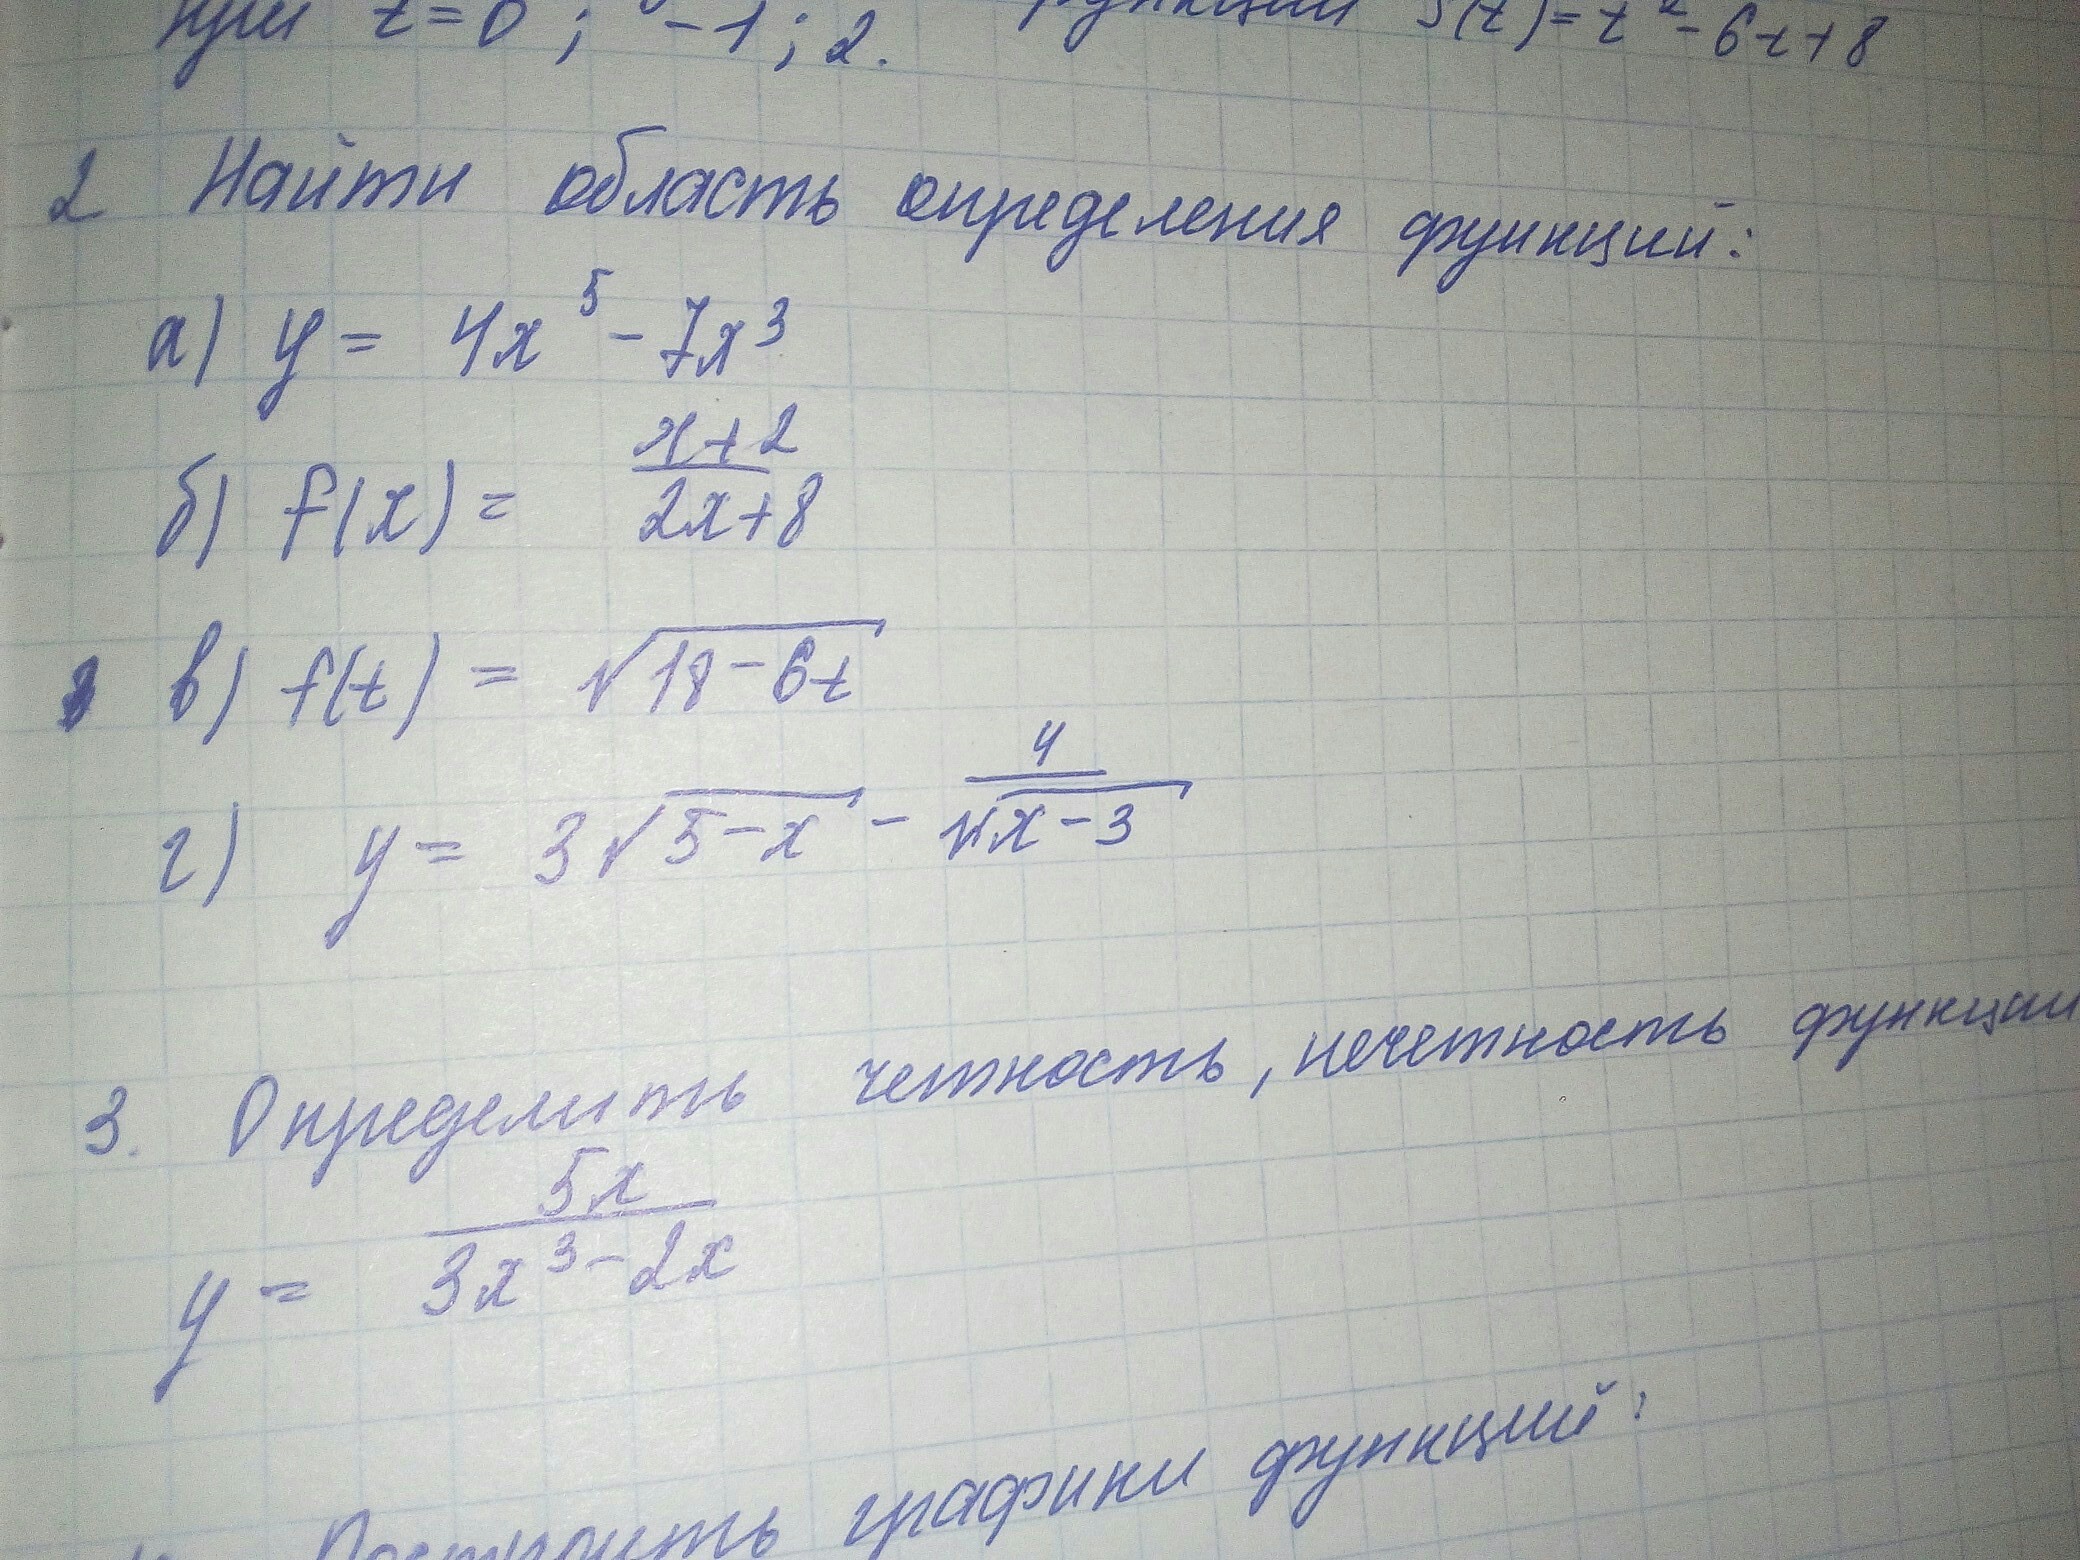 при t=0; -1; 2. функции S(t)=t²-6t+8
2 Найти область определения функций:
а) y = 4x⁵ - 7x³
б) f(x) = \frac{x+2}{2x+8}
в) f(t) = √(18-6t)
г) y = 3√(5-x) - \frac{4}{√(x-3)}
3. Определить четность, нечетность функции
y = \frac{5x}{3x³-2x}
Построить графики функций: